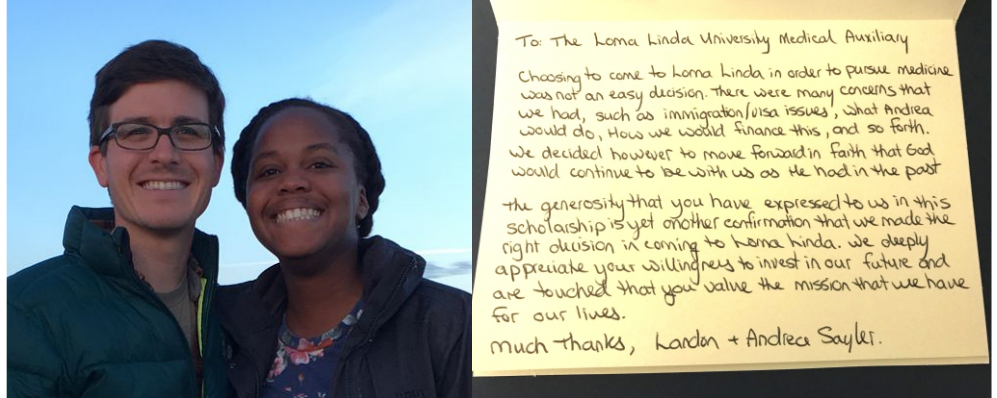 To: The Loma Linda University Medical Auxiliary
Choosing to come to Loma Linda in order to pursue medicine
was not an easy decision. There were many concerns that
we had, such as immigration/visa issues, what Andrea
would do, How we would finance this, and so forth.
We decided however to move forward in faith that God
would continue to be with us as He had in the past
The generosity that you have expressed to us in this
scholarship is yet another confirmation that we made the
right decision in coming to Loma Linda. We deeply
appreciate your willingness to invest in our future and
are touched that you value the mission that we have
for our lives.
Much thanks, Landon + Andrea Sayler.